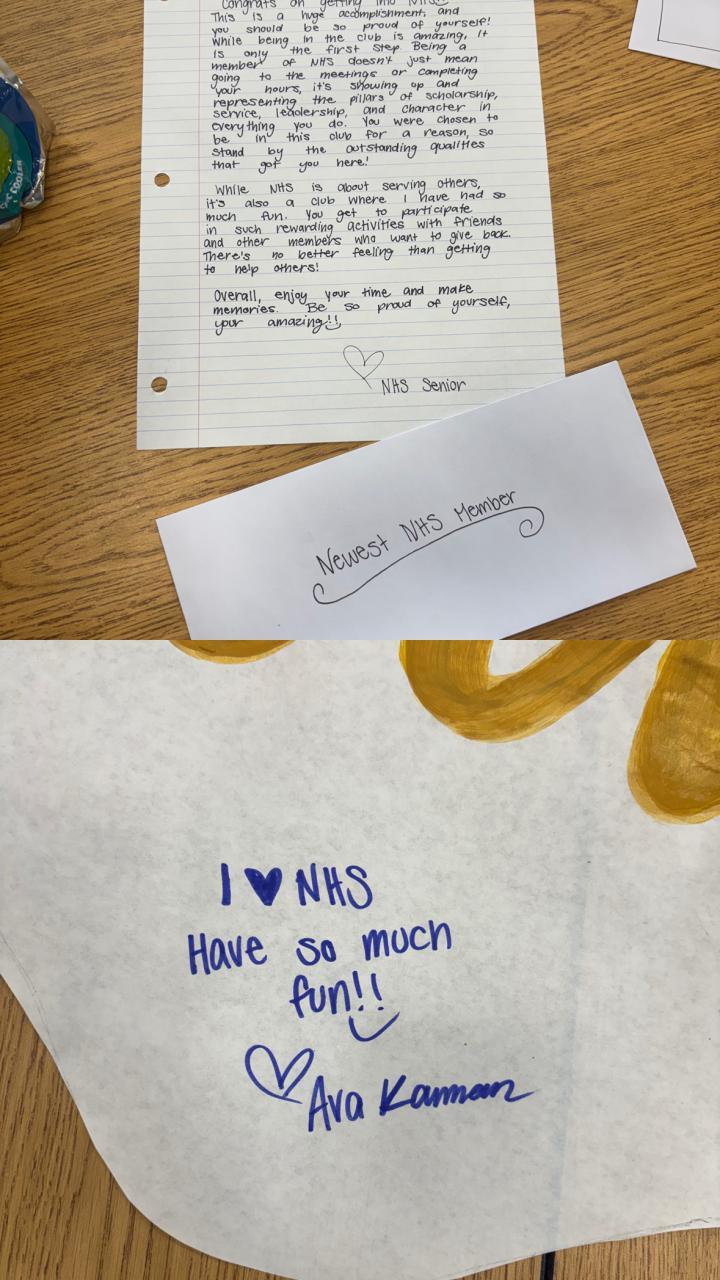 Congrats on getting into NHS!!
This is a huge accomplishment, and
you should be so proud of yourself!
While being in the club is amazing, it
is only the first step. Being a
member of NHS doesn't just mean
going to the meetings or completing
your hours, it's showing up and
representing the pillars of scholarship,
service, leadership, and character in
everything you do. You were chosen to
be in this club for a reason, so
stand by the outstanding qualities
that got you here!
While NHS is about serving others,
it's also a club where I have had so
much fun. You get to participate
in such rewarding activities with friends
and other members who want to give back.
There's no better feeling than getting
to help others!
Overall, enjoy your time and make
memories. Be so proud of yourself,
your amazing!!
NHS Senior
Newest NHS Member
I ♥ NHS
Have so much
fun!!
Ava Karman